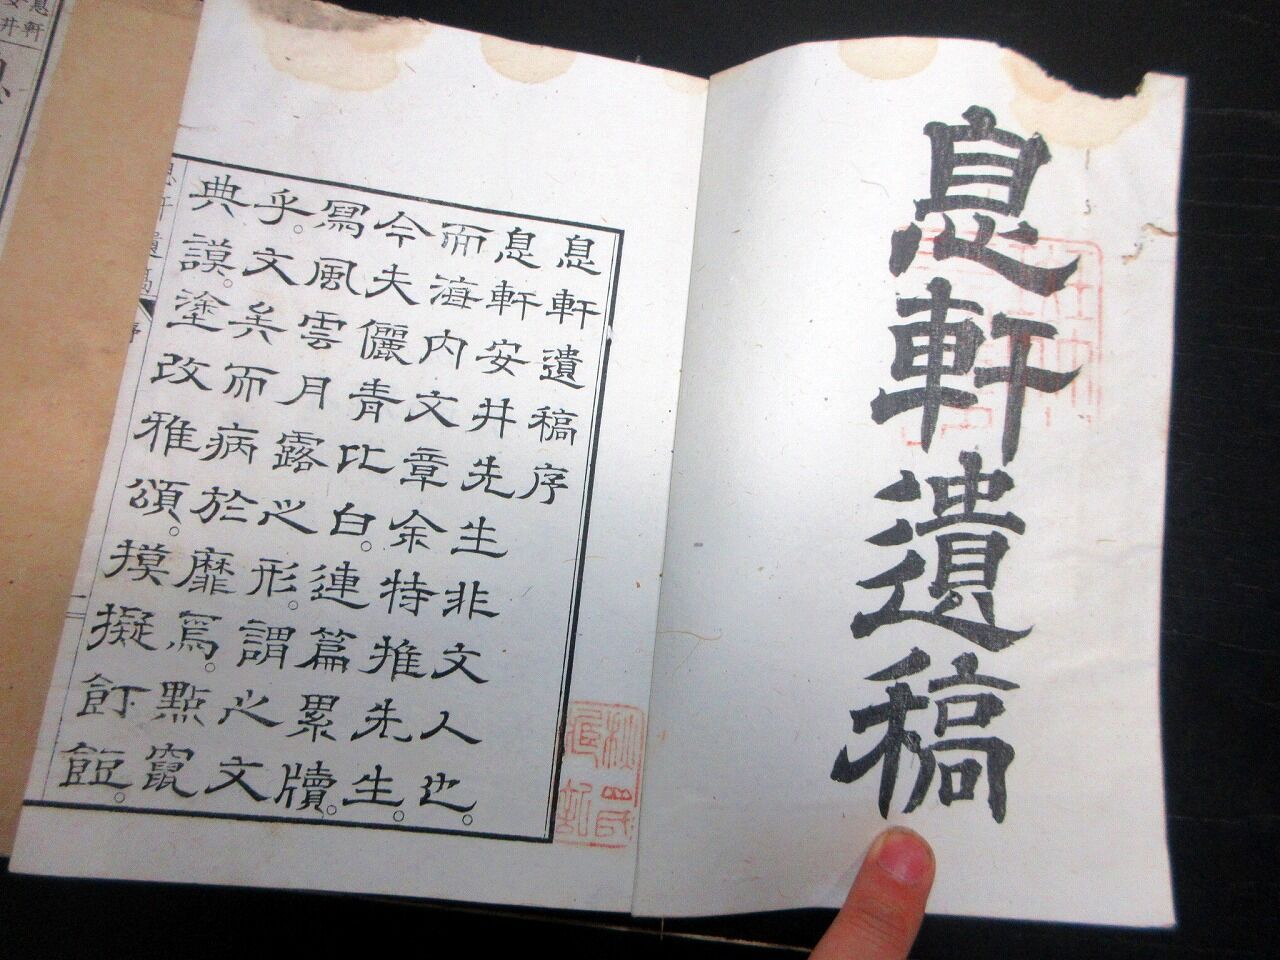 息軒遺稿
息軒遺稿序
息軒安井先生非文人也。
而海内文章余特推先生。
今夫儷青比白。連篇累牘。
寫風雲月露之形。謂之文
乎。文矣而病於靡焉。點竄
典謨。塗改雅頌。摸擬飣餖。